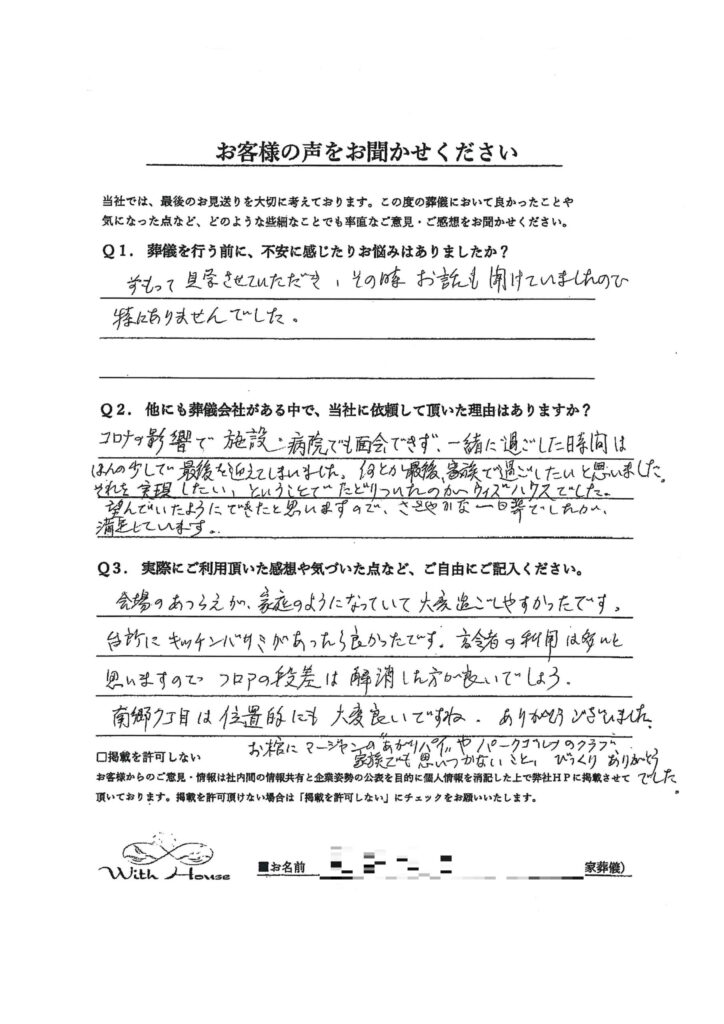 お客様の声をお聞かせください
当社では、最後のお見送りを大切に考えております。この度の葬儀において良かったことや
気になった点など、どのような些細なことでも率直なご意見・ご感想をお聞かせください。
Q1．葬儀を行う前に、不安に感じたりお悩みはありましたか？
前もって見学させていただき、その時お話も聞けていましたので
特にありませんでした。
Q2．他にも葬儀会社がある中で、当社に依頼して頂いた理由はありますか？
コロナの影響で施設・病院でも面会できず、一緒に過ごした時間は
ほんの少しで最後を迎えてしまいました。何とか最後、家族で過ごしたいと思いました。
それを実現したい、ということでたどりついたのがウィズハウスでした。
望んでいたようにできたと思いますので、ささやかな一日葬でしたが、
満足しています。
Q3．実際にご利用頂いた感想や気づいた点など、ご自由にご記入ください。
会場のあつらえが、家庭のようになっていて大変過ごしやすかったです。
台所にキッチンバサミがあったら良かったです。高令者の利用は多いと
思いますので フロアの段差は解消した方が良いでしょう。
南郷7丁目は位置的にも大変良いですね。ありがとうございました。
お棺にマージャンの"あがりパイ"やパークゴルフのクラブ、
家族でも思いつかないこと、びっくり ありがとう
でした。
□掲載を許可しない
お客様からのご意見・情報は社内間の情報共有と企業姿勢の公表を目的に個人情報を消記した上で弊社HPに掲載させて
頂いております。掲載を許可頂けない場合は「掲載を許可しない」にチェックをお願いいたします。
With House
■お名前 家葬儀）